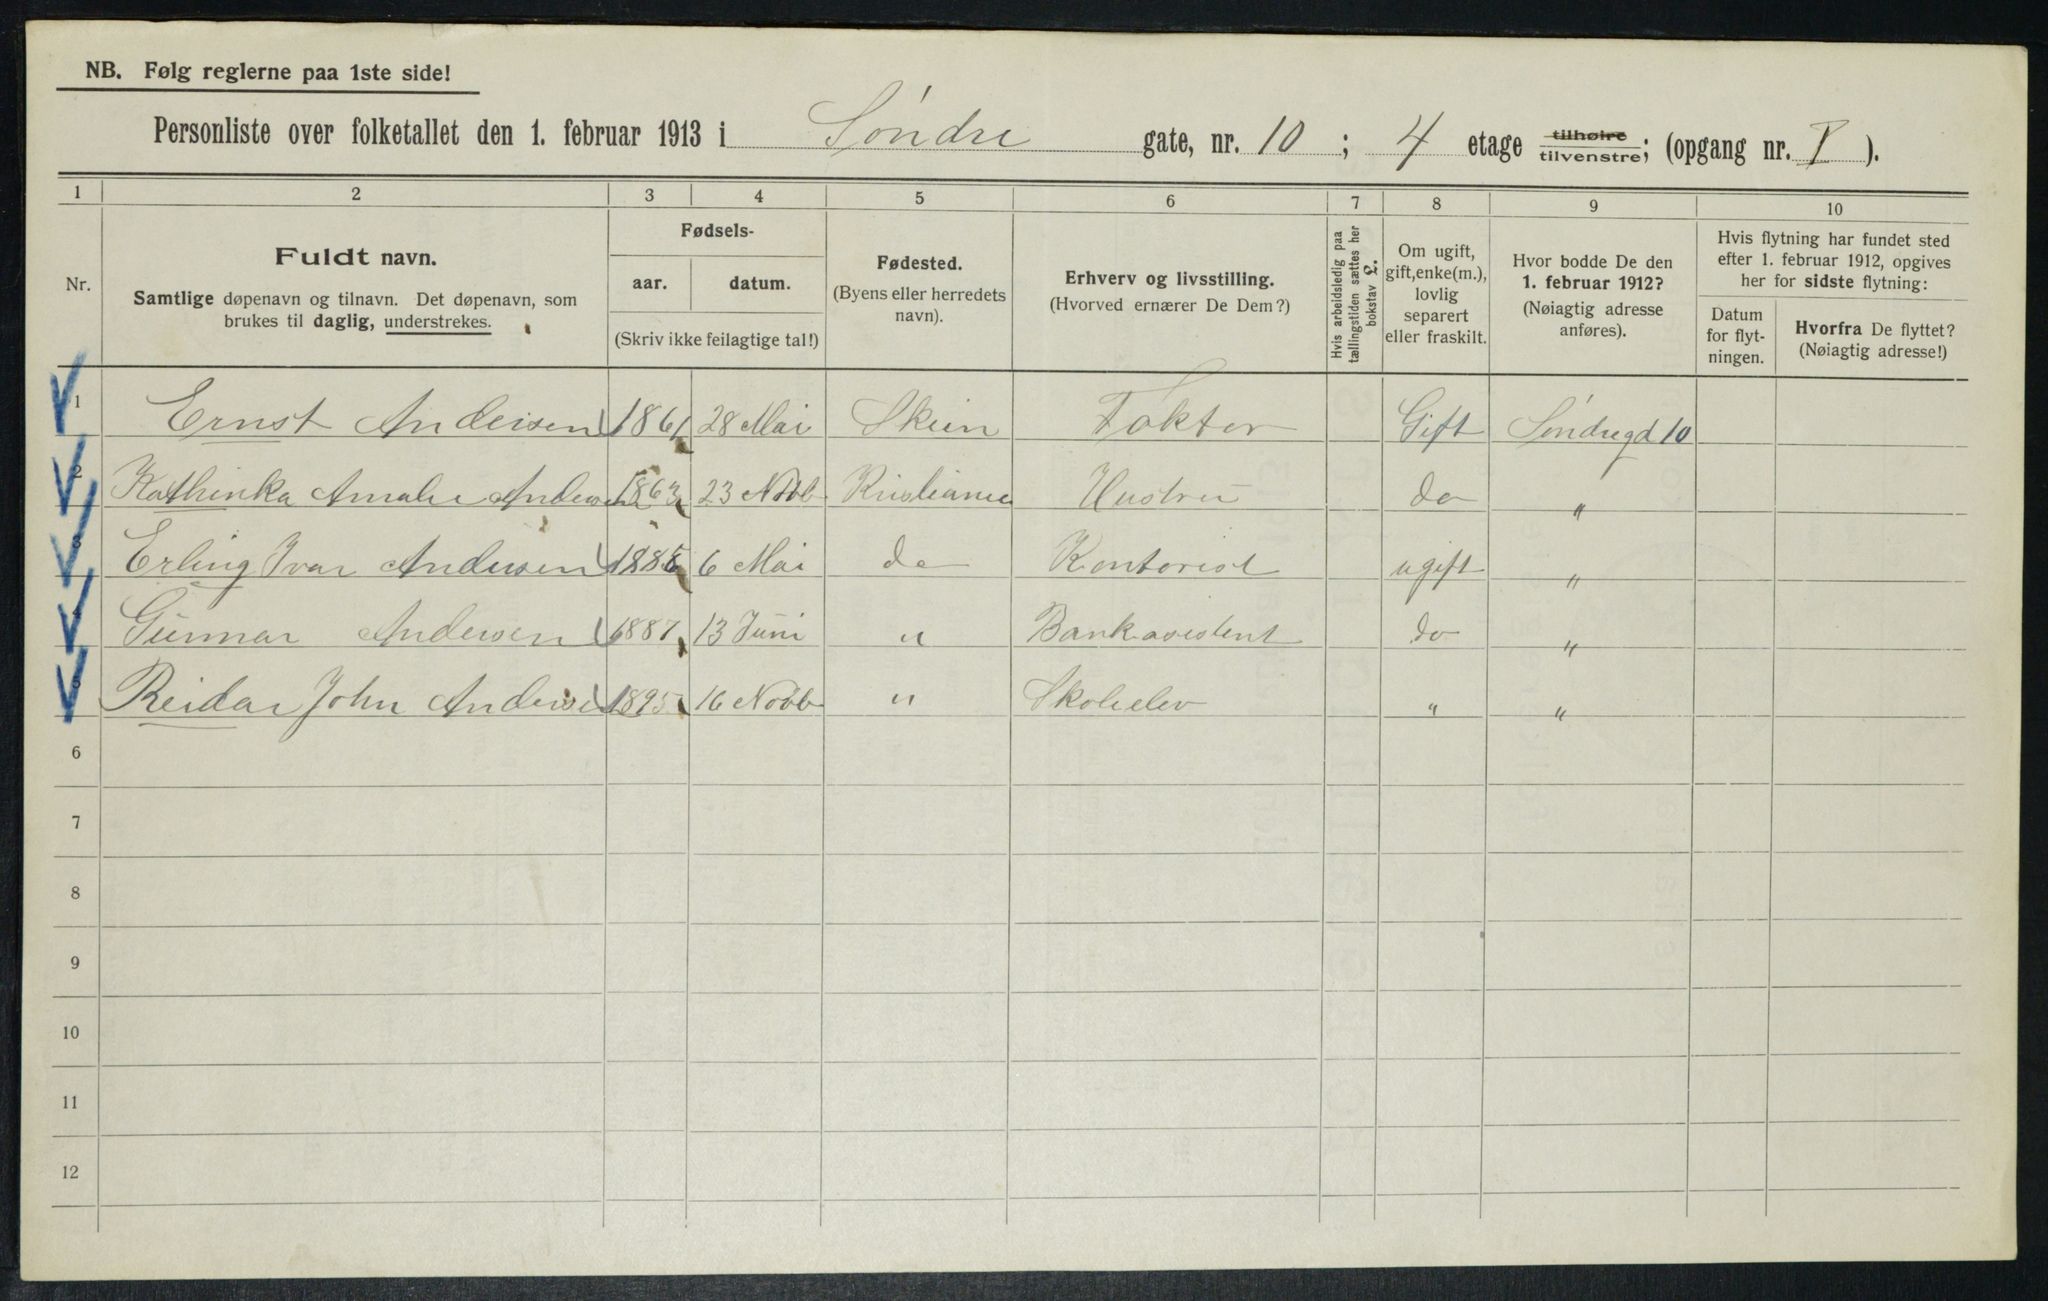 NB. Følg reglerne paa 1ste side!
Personliste over folketallet den 1. februar 1913 i Søndre gate, nr. 10 ; 4 etage tilhøire tilvenstre; (opgang nr. I ).
1 2 3 4 5 6 7 8 9 10
Nr.
Fuldt navn.
Samtlige døpenavn og tilnavn. Det døpenavn, som
brukes til daglig, understrekes.
Fødsels-
aar. datum.
(Skriv ikke feilagtige tal!)
Fødested.
(Byens eller herredets
navn).
Erhverv og livsstilling.
(Hvorved ernærer De Dem?)
Hvis arbeidsledig paa
tællingstiden sættes her
bokstav £.
Om ugift,
gift, enke(m.),
lovlig
separert
eller fraskilt.
Hvor bodde De den
1. februar 1912?
(Nøiagtig adresse
anføres).
Hvis flytning har fundet sted
efter 1. februar 1912, opgives
her for sidste flytning:
Datum
for flyt-
ningen.
Hvorfra De flyttet?
(Nøiagtig adresse!)
1 Ernst Andersen 1861 28 Mai Skien Faktor Gift Søndregd 10
2 Kathinka Amalie Andersen 1863 23 Novb Kristiania Hustru do "
3 Erling Ivar Andersen 6 Mai do Kontorist ugift "
4 Gunnar Andersen 1887 13 Juni " Bankasistent do "
5 Reidar John Andersen 1895 16 Novb " Skoleelev " "
6
7
8
9
10
11
12